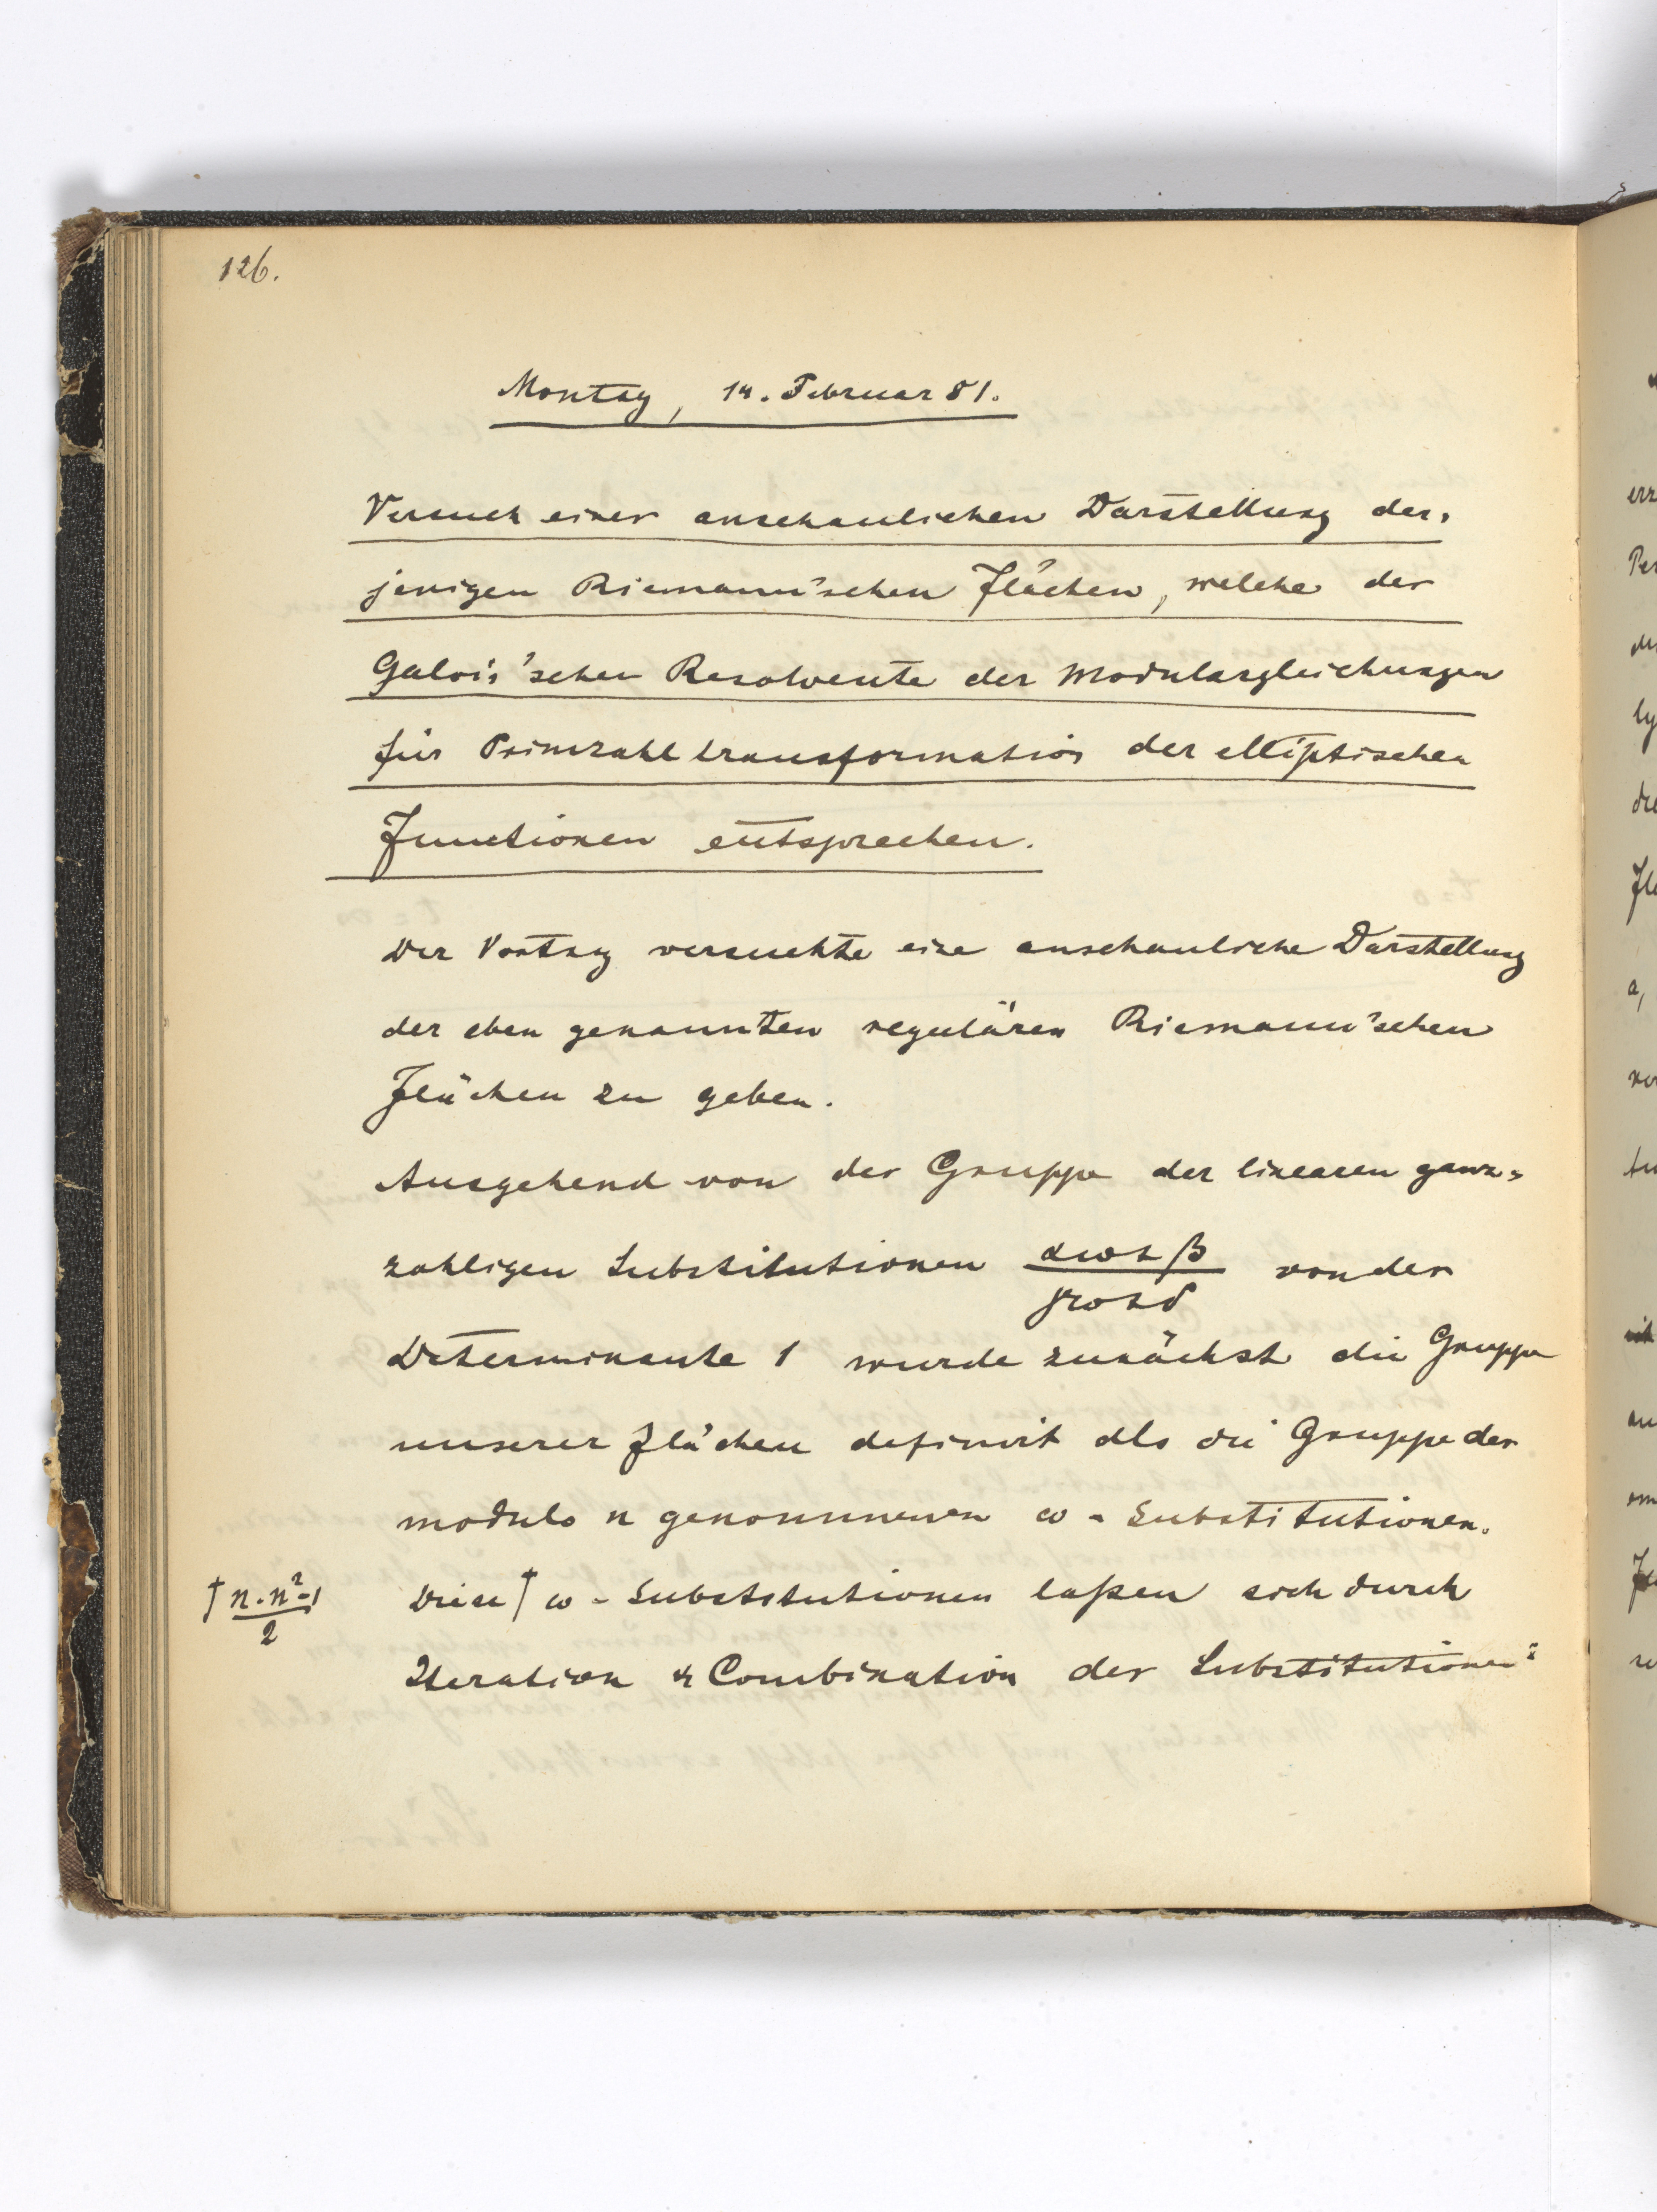 126.
Montag, 14. Februar 81.
Versuch einer anschaulichen Darstellung der=
jenigen Riemann'schen Flächen, welche der
Galois'schen Resolvente der Modulargleichungen
für Primzahltransformation der elliptischen
Functionen entsprechen.
Der Vortrag versuchte eine anschauliche Darstellung
der eben genannten regulären Riemann'schen
Flächen zu geben.
Ausgehend von der Gruppe der linearen ganz=
zahligen Substitutionen (αω+β)/(γω+δ) von der
Determinante 1 wurde zunächst die Gruppe
unserer Flächen definirt als die Gruppe der
modulo n genommenen ω-Substitutionen.
† n·n²-1/2 Diese† ω-Substitutionen laßen sich durch
Iteration & Combination der Substitutionen: